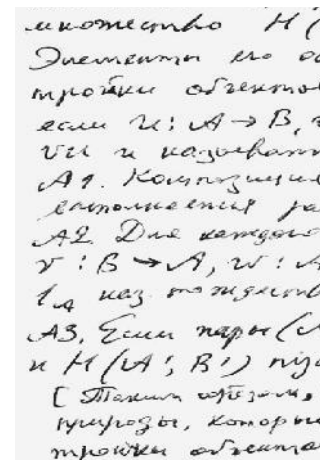 множество H(
Элементы его об
тройки объектов
если u: A → B, v
vu и называют
A1. Композиция
выполняется ра
A2. Для каждого
v: B → A, w: A
1_A наз. тождеств
A3. Если пары (A
и H(A', B')
[Таким образом,
природы, которы
тройки объекта